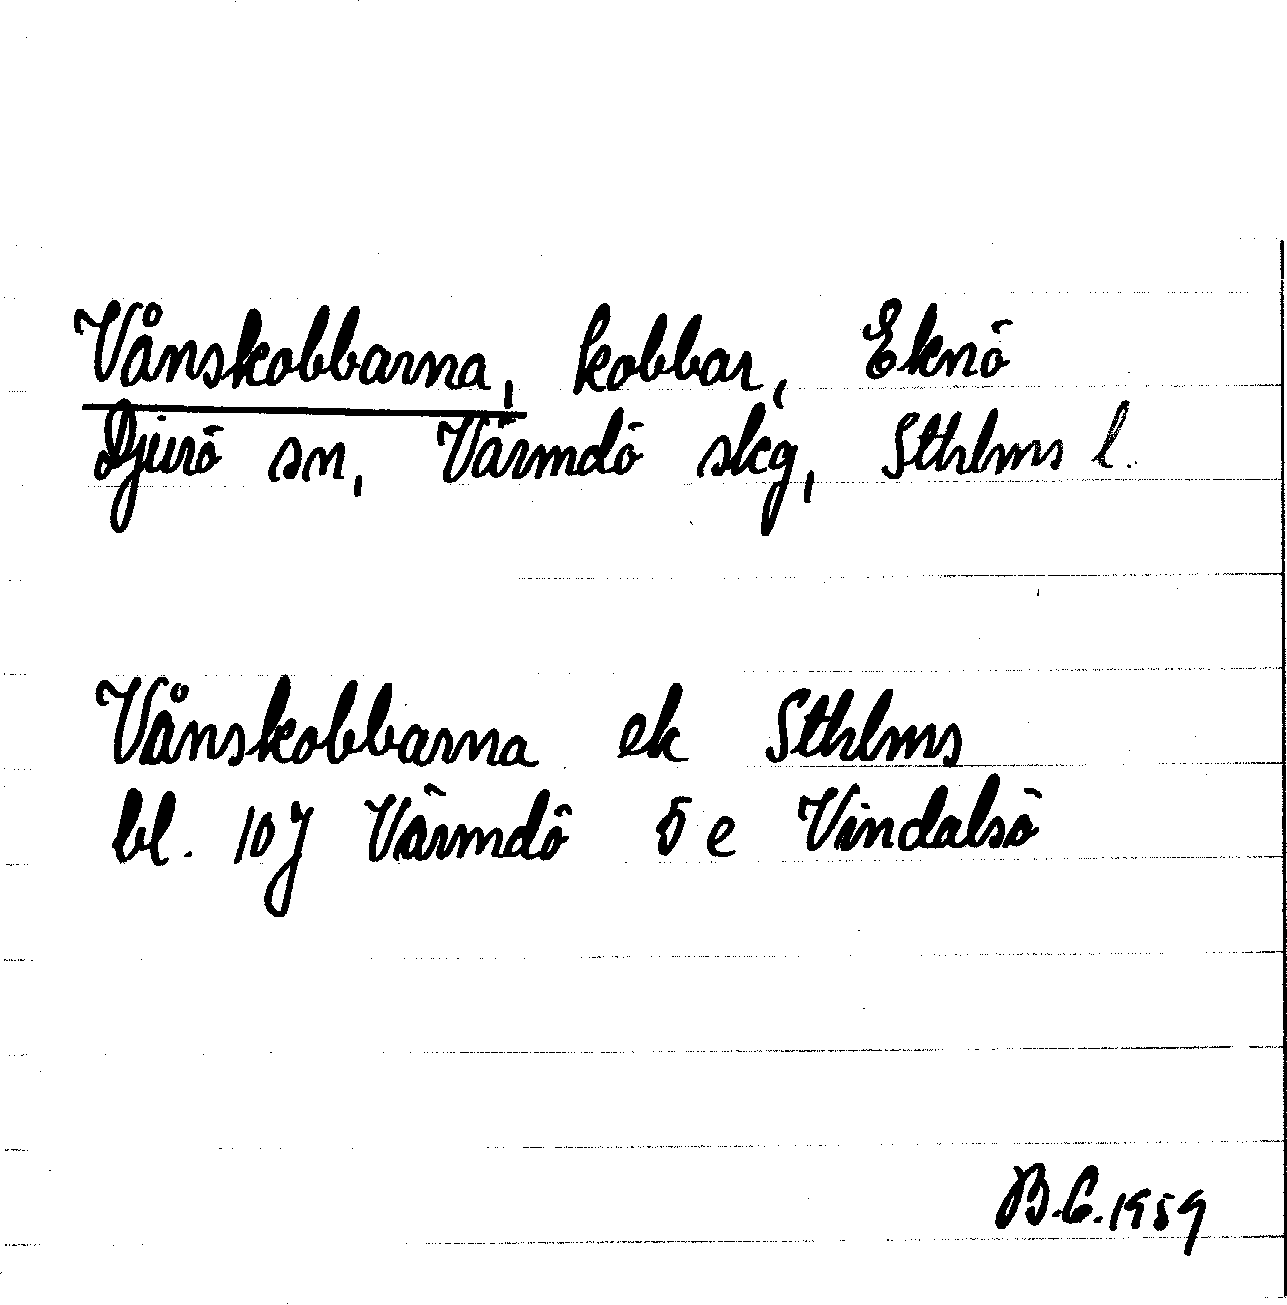 Vånskobbarna, kobbar, Eknö
Djurö sn, Värmdö skg, Sthlms l.
Vånskobbarna ek Sthlms
bl. 10J Värmdö 5 e Vindalsö
B.G.1959